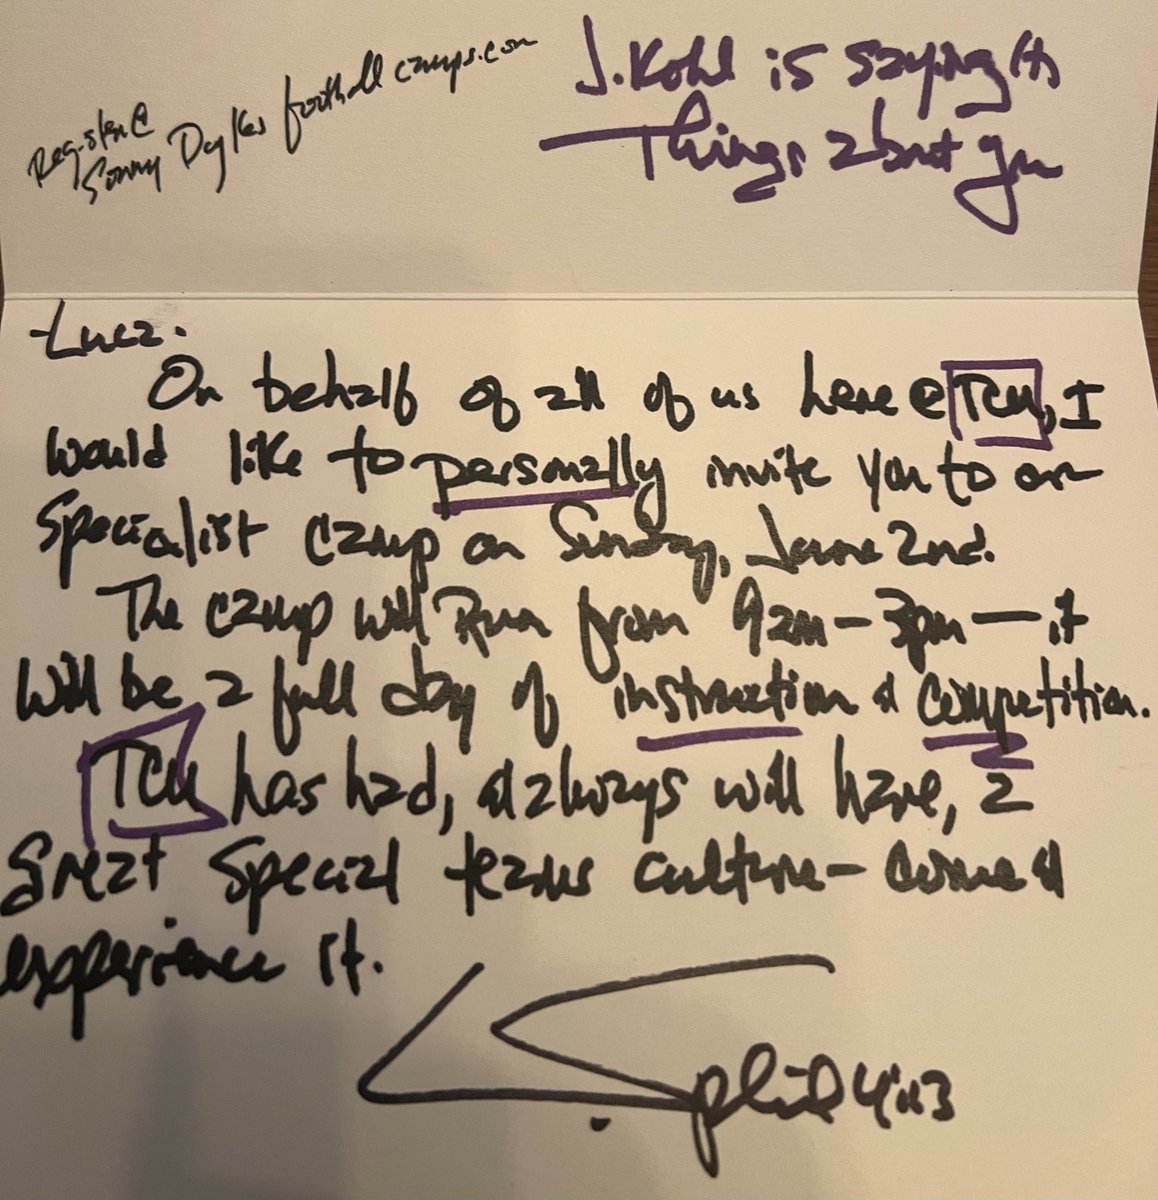 Register @
Sonny Dykes football camps.com
J. Kohl is saying
Things about you
Luca.
On behalf of all of us here @ TCU, I
would like to personally invite you to our
Specialist camp on Sunday, June 2nd.
The camp will Run from 9am - 3pm — it
will be a full day of instruction & competition.
TCU has had, & always will have, a
great special teams culture - come &
experience it.
phil 4:13